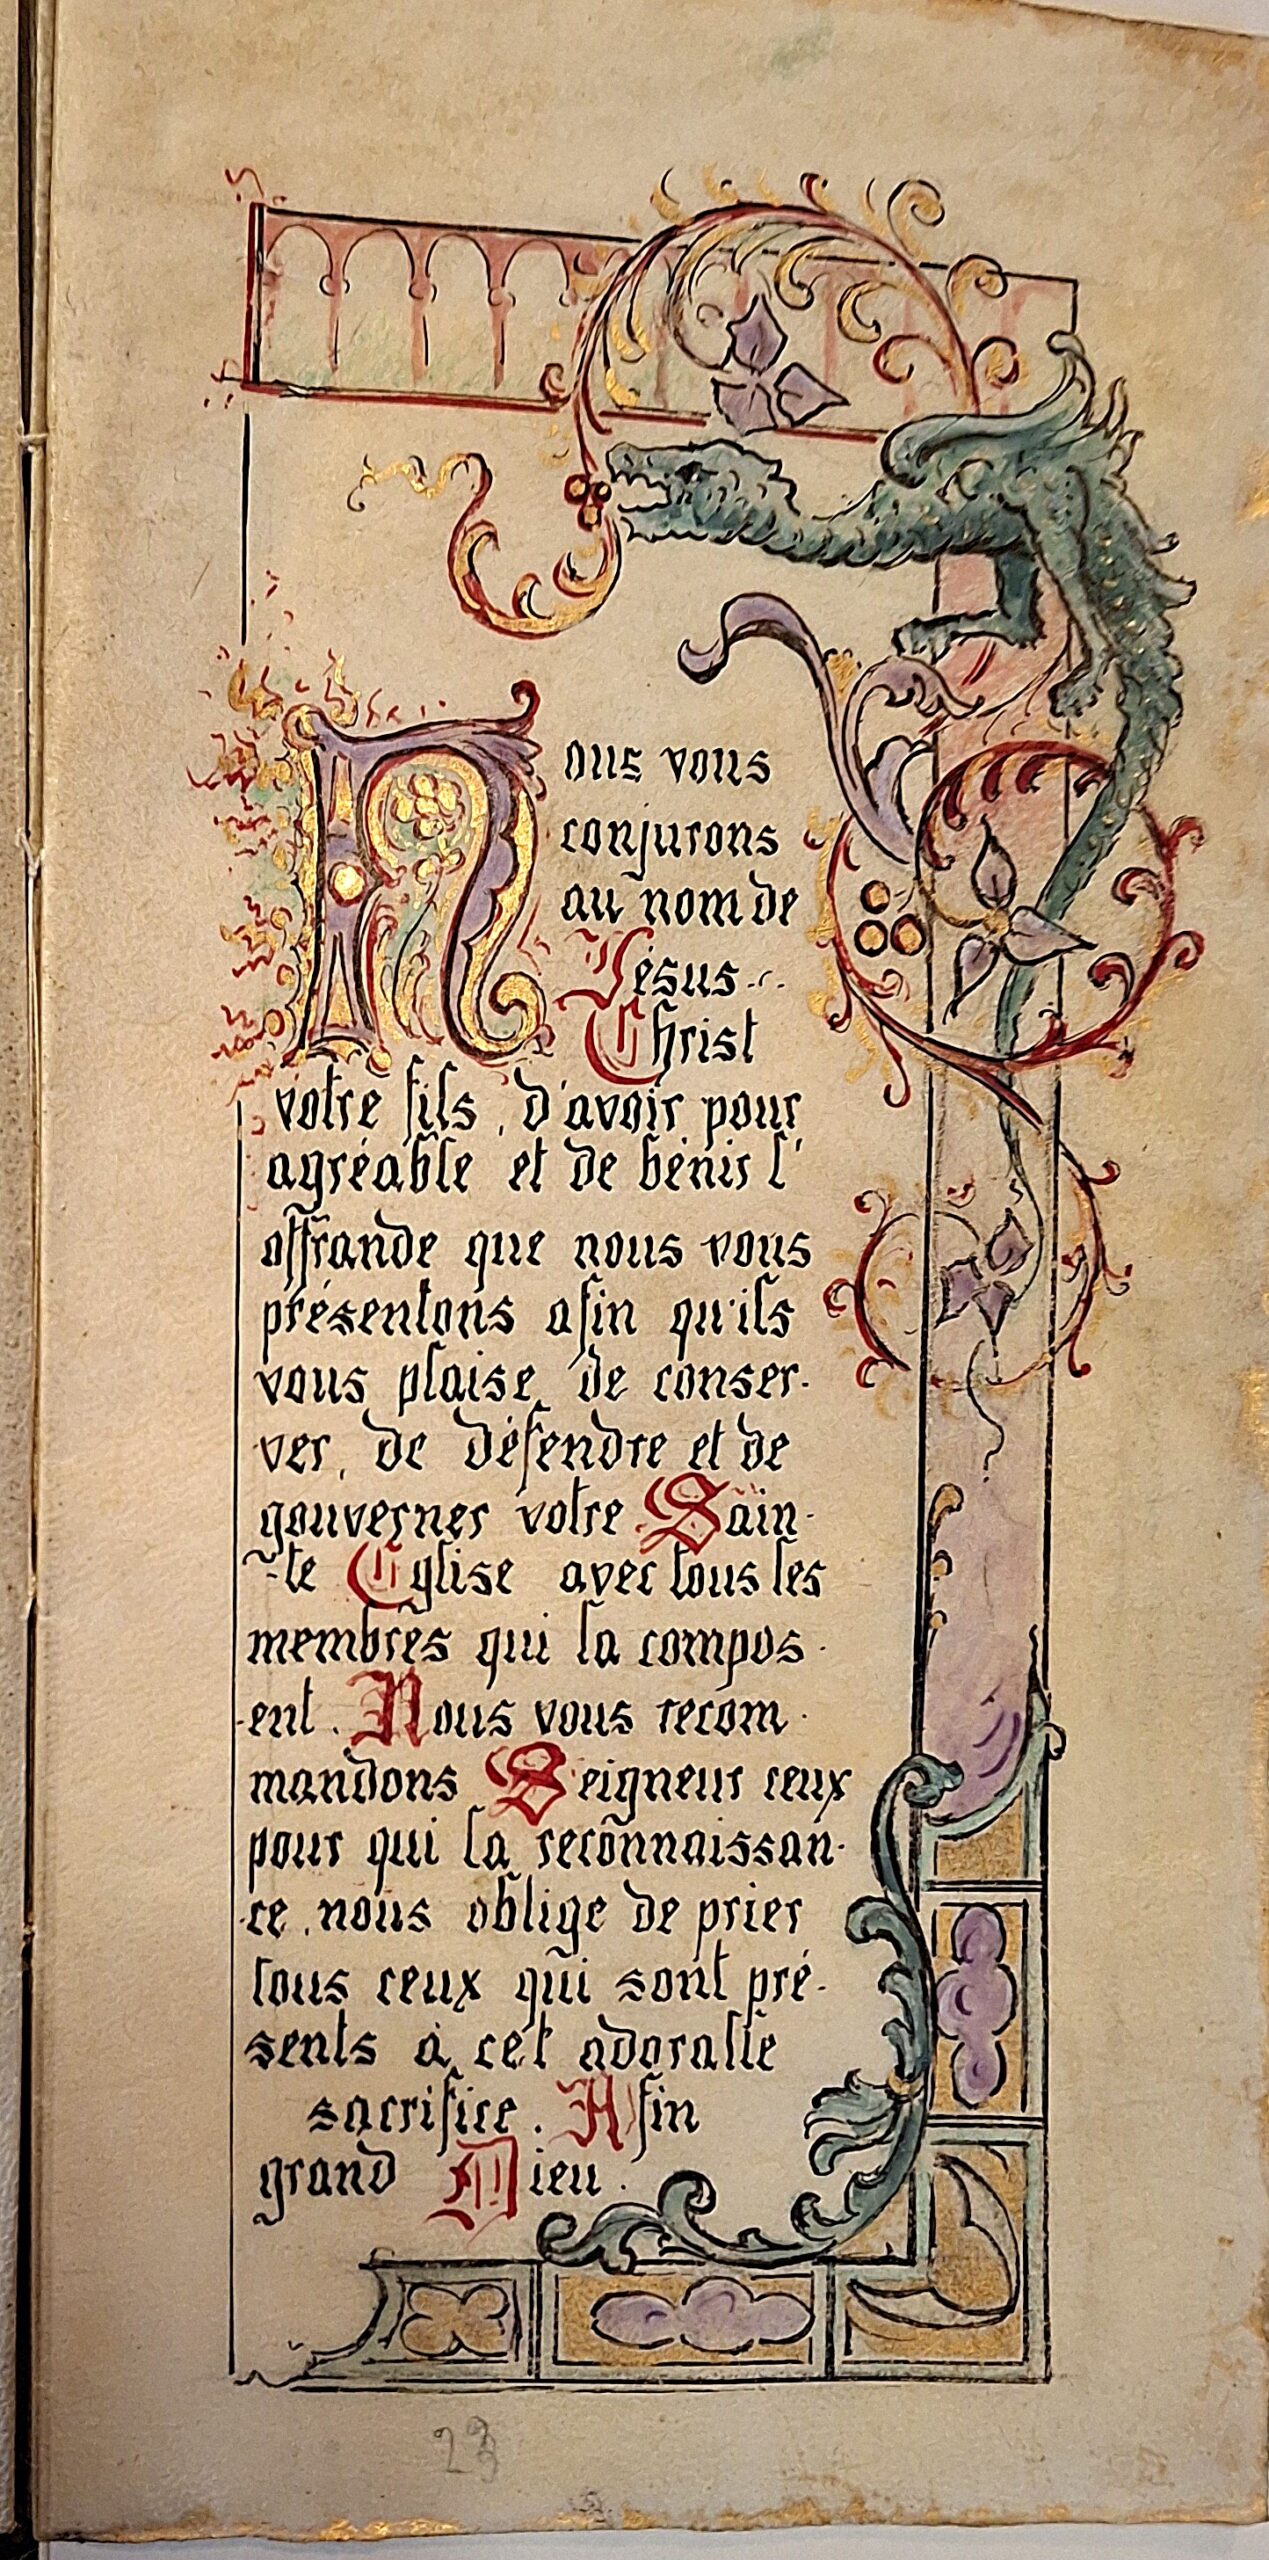 Nous vous
conjurons
au nom de
Jésus-
Christ
votre fils, d'avoir pour
agréable et de bénir l'
offrande que nous vous
présentons afin qu'ils
vous plaise de conser-
ver, de défendre et de
gouverner votre Sain-
-te Eglise avec tous les
membres qui la compos-
ent. Nous vous recom-
mandons Seigneur ceux
pour qui la reconnaissan-
ce nous oblige de prier
tous ceux qui sont pré-
sents à cet adorable
sacrifice. Afin
grand Dieu.
23